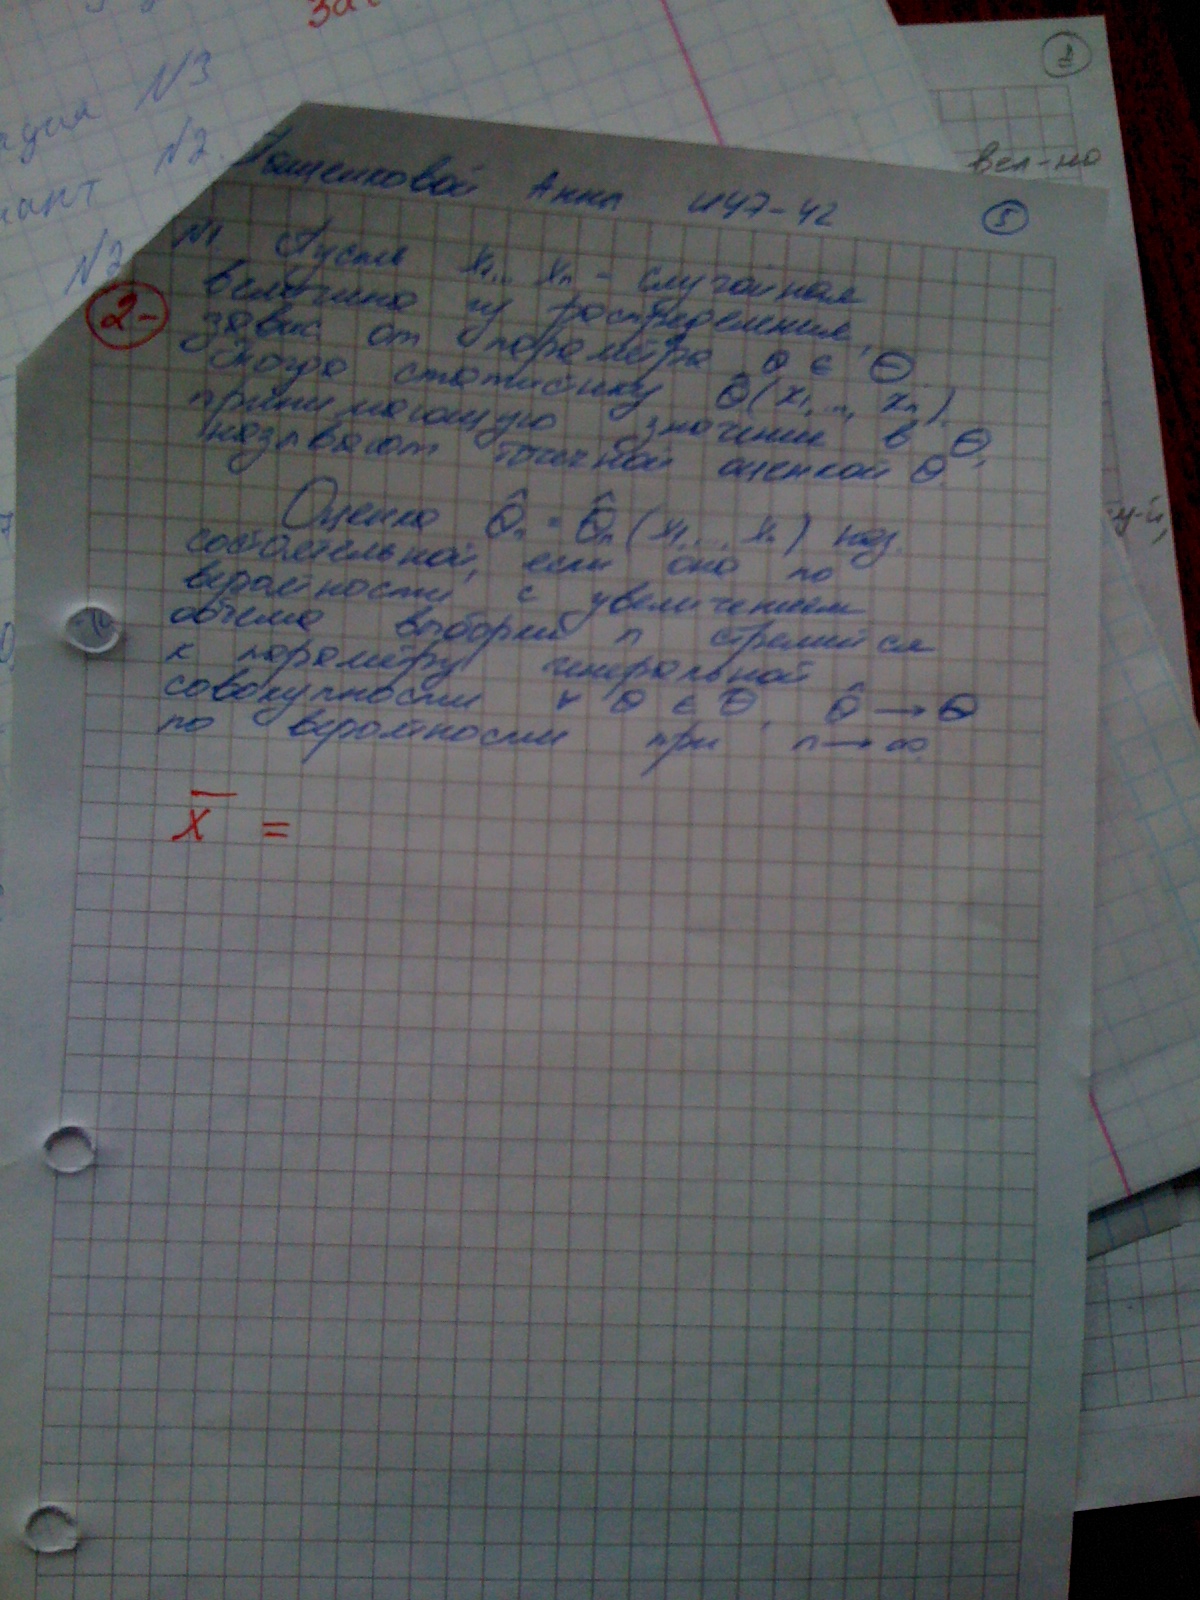 за
N3
N2
вел-на
N2
Анны ИУ7-42
5
N1 Пусть x₁... xₙ - случайная
величина из распределения,
2-
завис от параметра θ ∈ Θ.
Тогда статистику θ̂(x₁,..., xₙ),
принимающую значения в Θ,
называют точечной оценкой θ.
Оценка θ̂ₙ = θ̂ₙ(x₁,..., xₙ) наз.
состоятельной, если она по
вероятности с увеличением
объема выборки n стремится
к параметру генеральной
совокупности ∀ θ ∈ Θ, θ̂ → θ
по вероятности при n → ∞
x̄ =